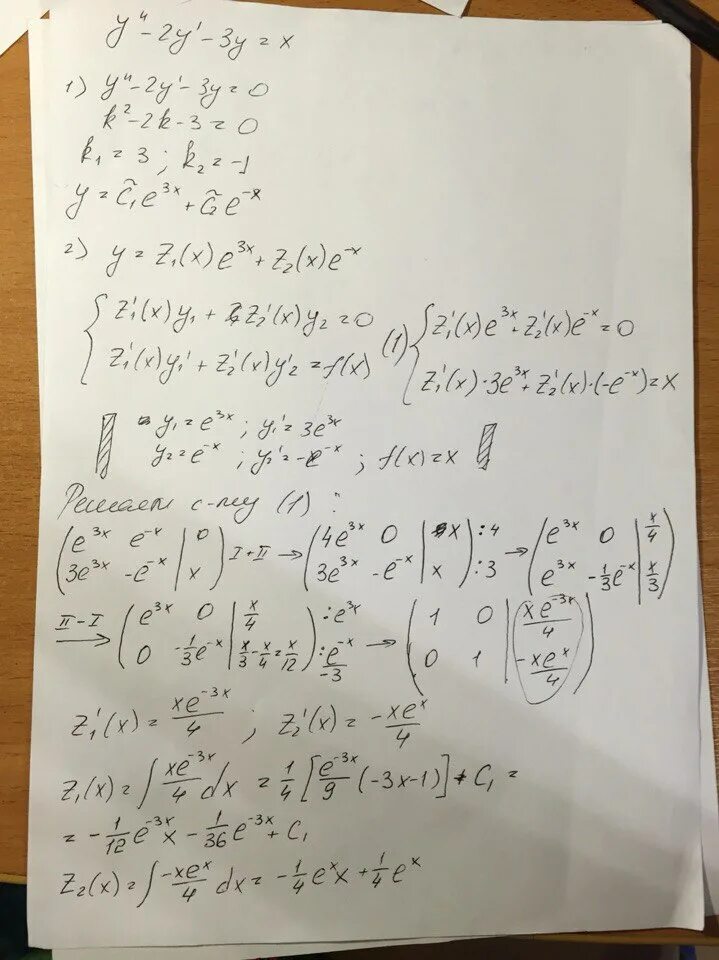 y'' - 2y' - 3y = x
1) y'' - 2y' - 3y = 0
k² - 2k - 3 = 0
k₁ = 3 ; k₂ = -1
y = C̃₁e^{3x} + C̃₂e^{-x}
2) y = z₁(x)e^{3x} + z₂(x)e^{-x}
{ z₁'(x)y₁ + z₂'(x)y₂ = 0
z₁'(x)y₁' + z₂'(x)y₂' = f(x)
(1) { z₁'(x)e^{3x} + z₂'(x)e^{-x} = 0
z₁'(x)·3e^{3x} + z₂'(x)·(-e^{-x}) = x
y₁ = e^{3x} ; y₁' = 3e^{3x}
y₂ = e^{-x} ; y₂' = -e^{-x} ; f(x) = x
Решаем с-му (1) :
( e^{3x} e^{-x} | 0
3e^{3x} -e^{-x} | x ) I+II → ( 4e^{3x} 0 | x
3e^{3x} -e^{-x} | x ) :4 :3 → ( e^{3x} 0 | x/4
e^{3x} -1/3e^{-x} | x/3 )
II-I → ( e^{3x} 0 | x/4
0 -1/3e^{-x} | x/3 - x/4 = x/12 ) :e^{3x} :e^{-x}/-3 → ( 1 0 | xe^{-3x}/4
0 1 | -xe^{x}/4 )
z₁'(x) = xe^{-3x}/4 ; z₂'(x) = -xe^{x}/4
z₁(x) = ∫ xe^{-3x}/4 dx = 1/4 [ e^{-3x}/9 (-3x-1) ] + C₁ =
= -1/12 e^{-3x}x - 1/36 e^{-3x} + C₁
z₂(x) = ∫ -xe^{x}/4 dx = -1/4 e^{x}x + 1/4 e^{x}